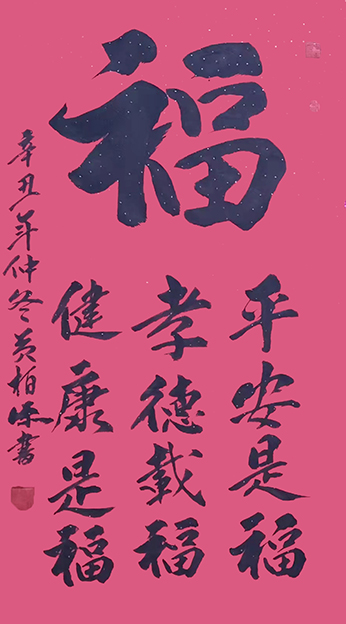 福
平安是福
孝德載福
健康是福
辛丑年仲冬黄柏承書